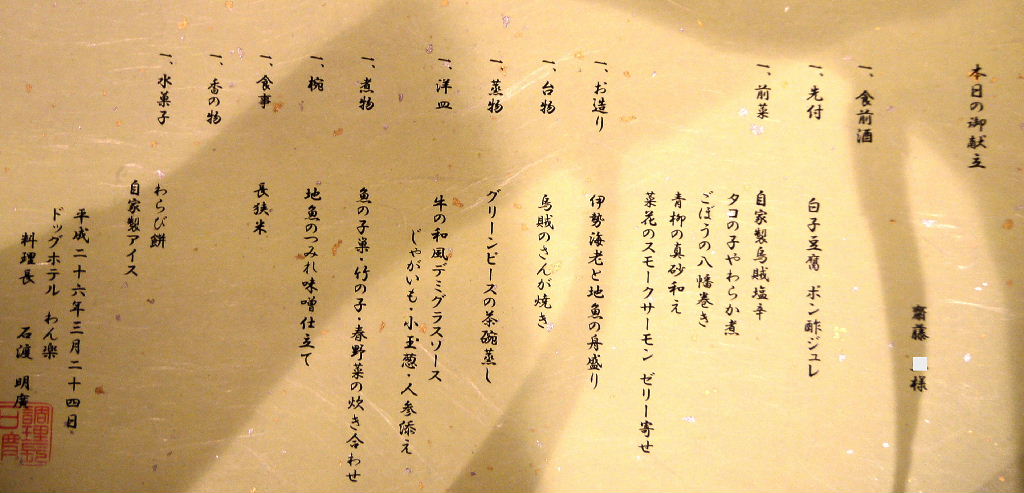 本日の御献立
齋藤 様
一、食前酒
一、先付 白子豆腐 ポン酢ジュレ
一、前菜 自家製烏賊塩辛
タコの子やわらか煮
ごぼうの八幡巻き
青柳の真砂和え
菜花のスモークサーモン ゼリー寄せ
一、お造り 伊勢海老と地魚の舟盛り
一、台物 烏賊のさんが焼き
一、蒸物 グリーンピースの茶碗蒸し
一、洋皿 牛の和風デミグラスソース
じゃがいも・小玉葱・人参添え
一、煮物 魚の子巣・竹の子・春野菜の炊き合わせ
一、椀 地魚のつみれ味噌仕立て
一、食事 長狭米
一、香の物
一、水菓子 わらび餅
自家製アイス
平成二十六年三月二十四日
ドッグホテル わん楽
料理長 石渡 明廣